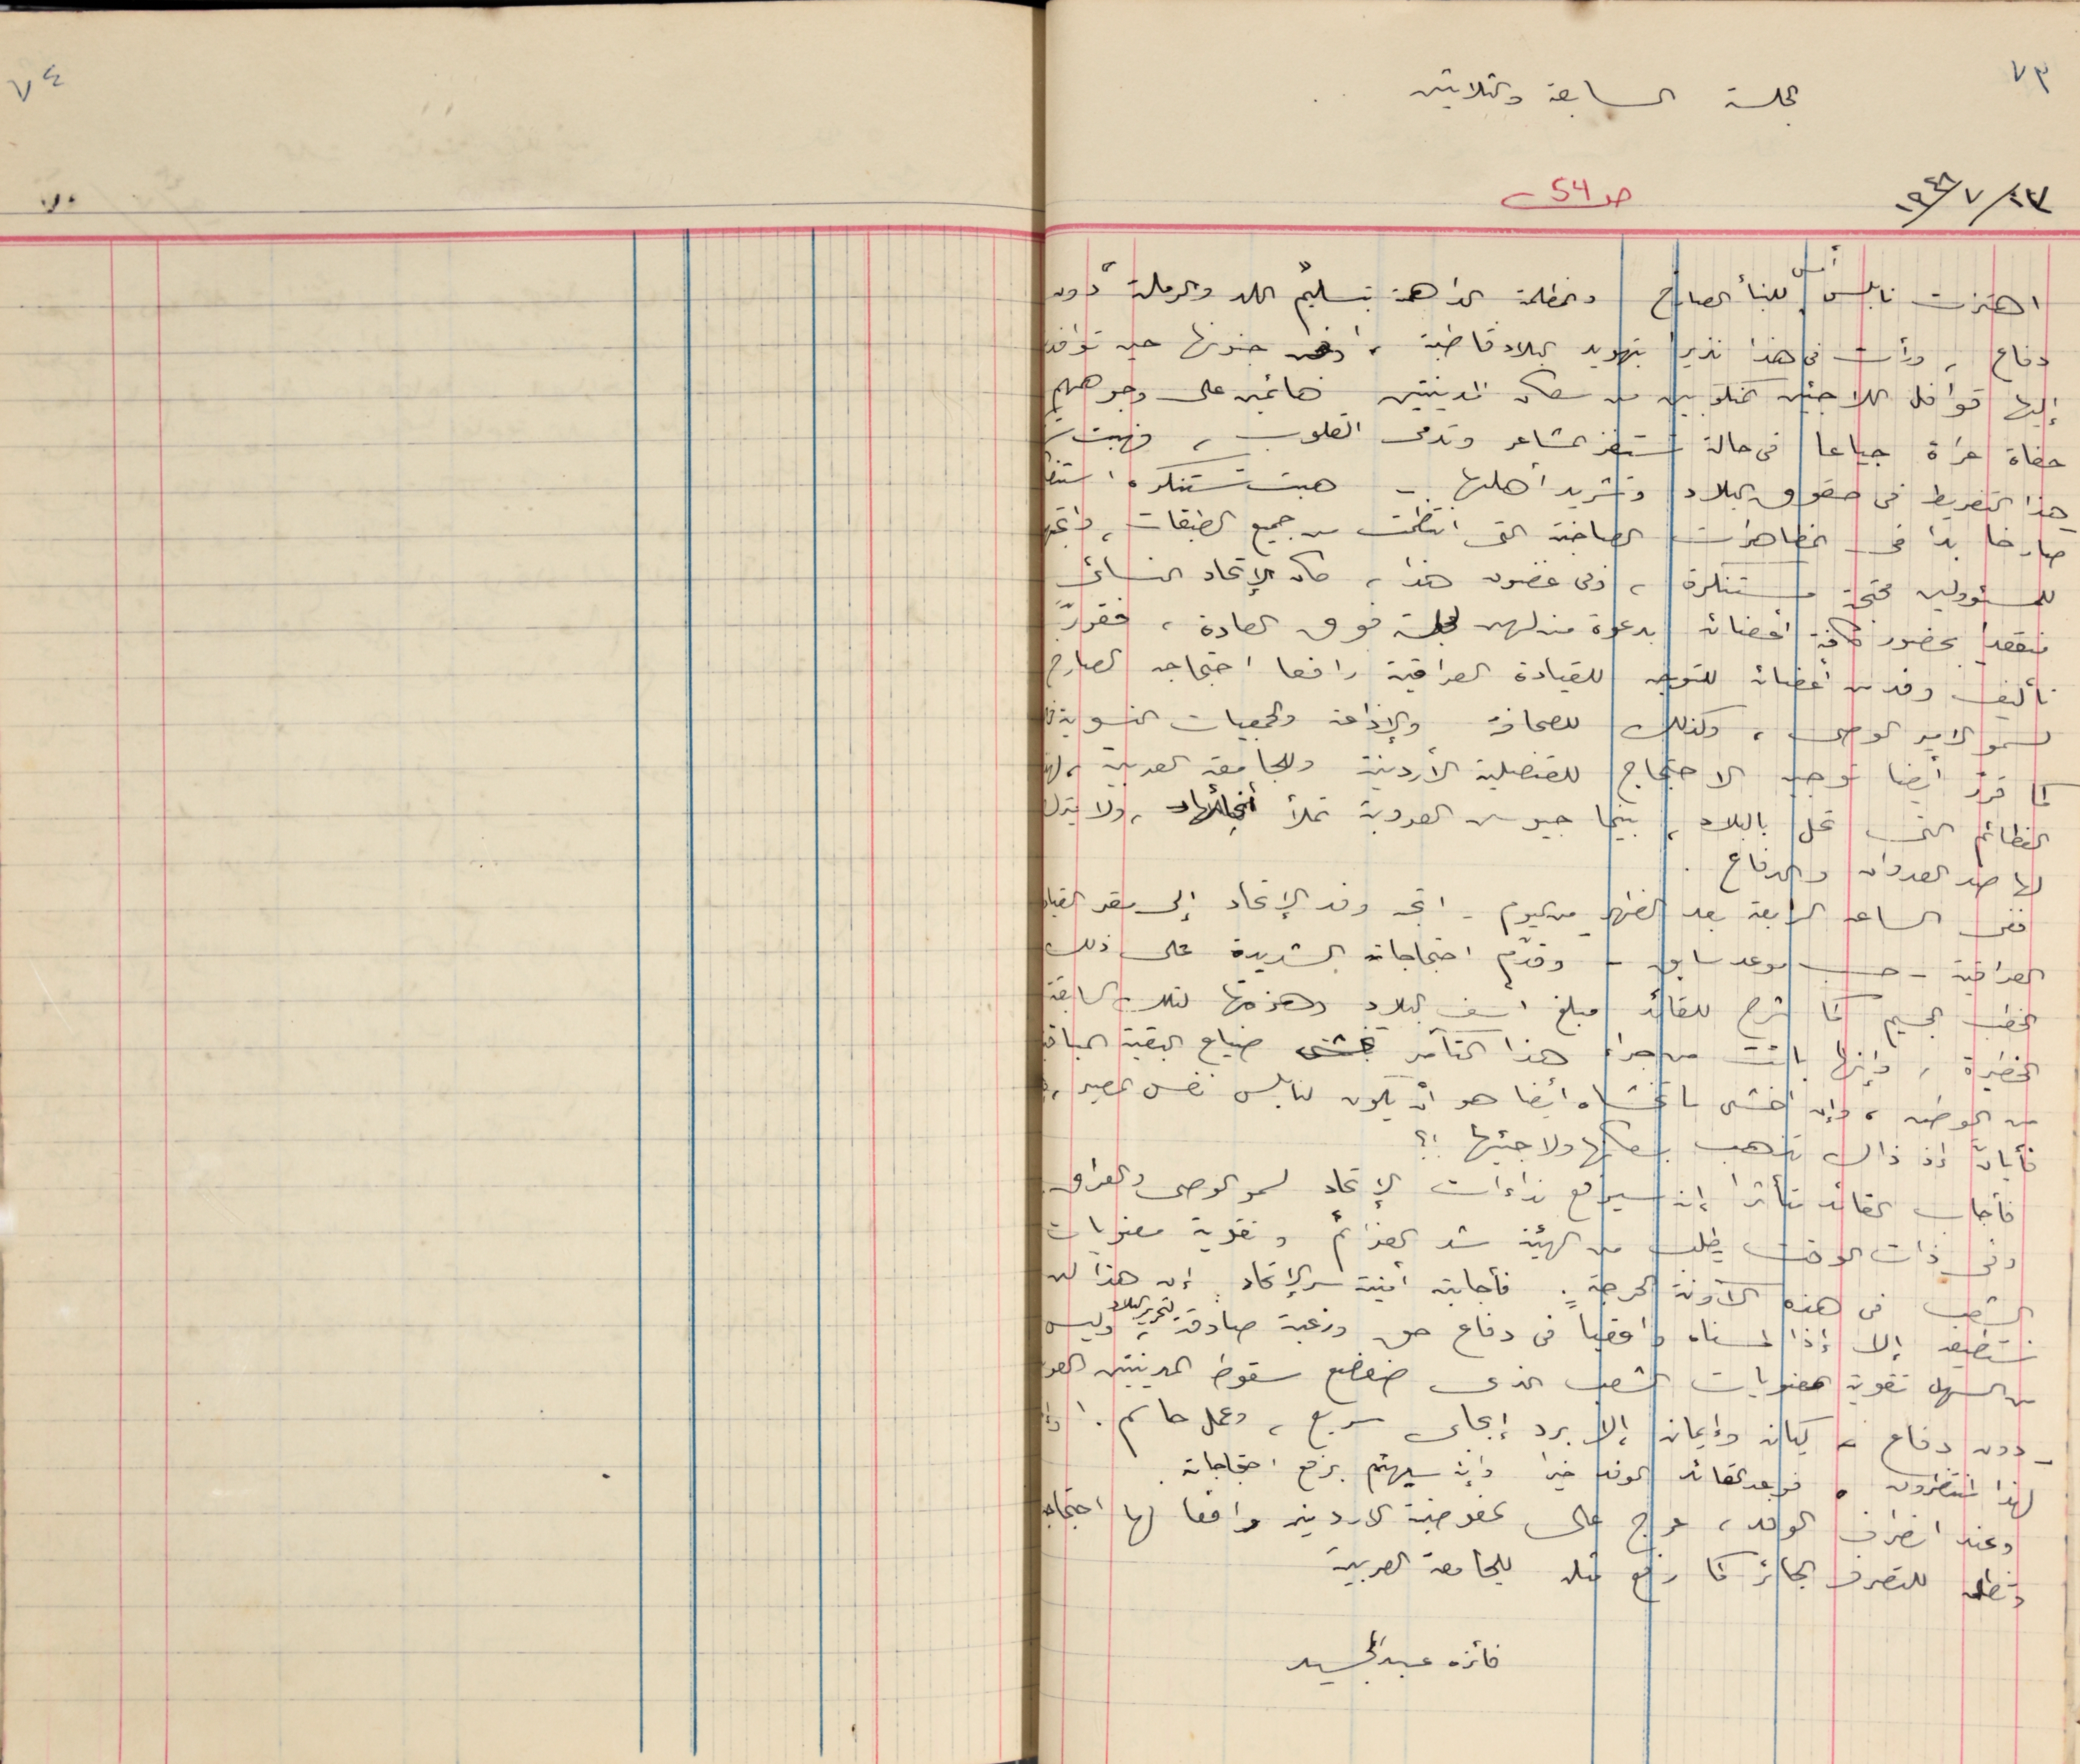 ٧٣
جلسة السابعة والثلاثين
١٩٤٨/٧/١٣
صـ 54
اهتزت نابلس أمس للنبأ الصارخ والمظلمة الداهمة بتسليم اللد والرملة دون
دفاع ، ورأت في هذا نذيرا بتهويد البلاد قاطبة ، جنونها حين توافد
إليها قوافل اللاجئين المنكوبين من سكان المدينتين هائمين على وجوههم
حفاة عراة جياعا في حالة تستفز المشاعر وتدمى القلوب ، فهبت
هذا التفريط في حقوق البلاد وتشريد أهلها - هبت تستنكره
صارخا بدا في المظاهرات الصاخبة التي انتظمت من جميع الطبقات ،
للمسؤولين محتجة مستنكرة ، وفي غضون هذا ، كان الإتحاد النسائي
منعقدا بحضور كافة أعضائه بدعوة منه لهن لجلسة فوق العادة ، فقرر
تأليف وفد من أعضائه للتوجه للقيادة العراقية رافعا احتجاجه الصارخ
لسمو الامير الوصى ، وكذلك للصحافة والإذاعة والجمعيات النسوية
كما قرر أيضا توجيه الاحتجاج للقنصلية الأردنية وللجامعة العربية ،
الفظائع التي تحل بالبلاد ، بينما جيوش العروبة تملأ أنحائها ، ولا يترك
لها صد العدوان والدفاع .
ففى الساعة الرابعة بعد الظهر من اليوم - اتجه وفد الإتحاد إلى مقر القيادة
العراقية - حسب موعد سابق - وقدم احتجاجاته الشديدة على ذلك
الخطب الجسيم كما شرح للقائد مبلغ أسف البلاد لتلك السابقة
الخطيرة ، وإنها باتت من جراء هذا التآمر تخشى ضياع البقية الباقية
من الوطن ، وإن اخشى ما تخشاه أيضا هو أن يكون لنابلس نفس المصير ،
فأيان إذ ذاك تذهب بسكانها ولاجئيها !؟
فأجاب القائد متأثرا إنه سيرفع نداءات الإتحاد لسمو الوصى والعراق
وفى ذات الوقت يطلب من الهيئة شد العزائم وتقوية معنويات
الشعب في هذه الآونة الحرجة . فأجابته أمينة سر الإتحاد : إن هذا لن
نستطيعه إلا إذا لمسناه واقعيا في دفاع حق ورغبة صادقة لتحرير البلاد ، وليس
من السهل تقوية معنويات الشعب الذى ضعضع سقوط المدينتين
- دون دفاع - كيانه وإيمانه إلا برد إيجابى سريع ، وعمل حاسم .
لهذا منتظرون . فوعد القائد الوفد خيرا وإنه سيهتم برفع احتجاجاته .
وعند انصراف الوفد ، عرج على المفوضية الاردنية رافعا لها احتجاجه
للتصرف الجائر كما رفع مثله للجامعة العربية
فائزه عبد المجيد
٧٤